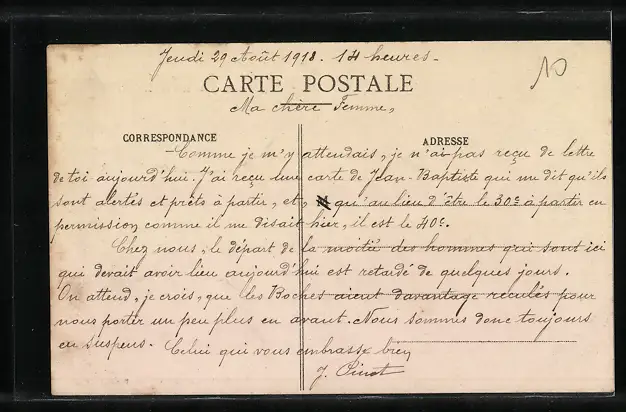 Jeudi 29 Août 1918. 14 heures.
10
CARTE POSTALE
Ma chère Femme,
CORRESPONDANCE
ADRESSE
Comme je m'y attendais, je n'ai pas reçu de lettre
de toi aujourd'hui. J'ai reçu une carte de Jean-Baptiste qui me dit qu'ils
sont alertés et prêts à partir, et, qu'au lieu d'être le 30e à partir en
permission comme il me disait hier, il est le 40e.
Chez nous, le départ de la moitié des hommes qui sont ici
qui devait avoir lieu aujourd'hui est retardé de quelques jours.
On attend, je crois, que les Boches aient davantage reculés pour
nous porter un peu plus en avant. Nous sommes donc toujours
en suspens. Celui qui vous embrasse bien
J.